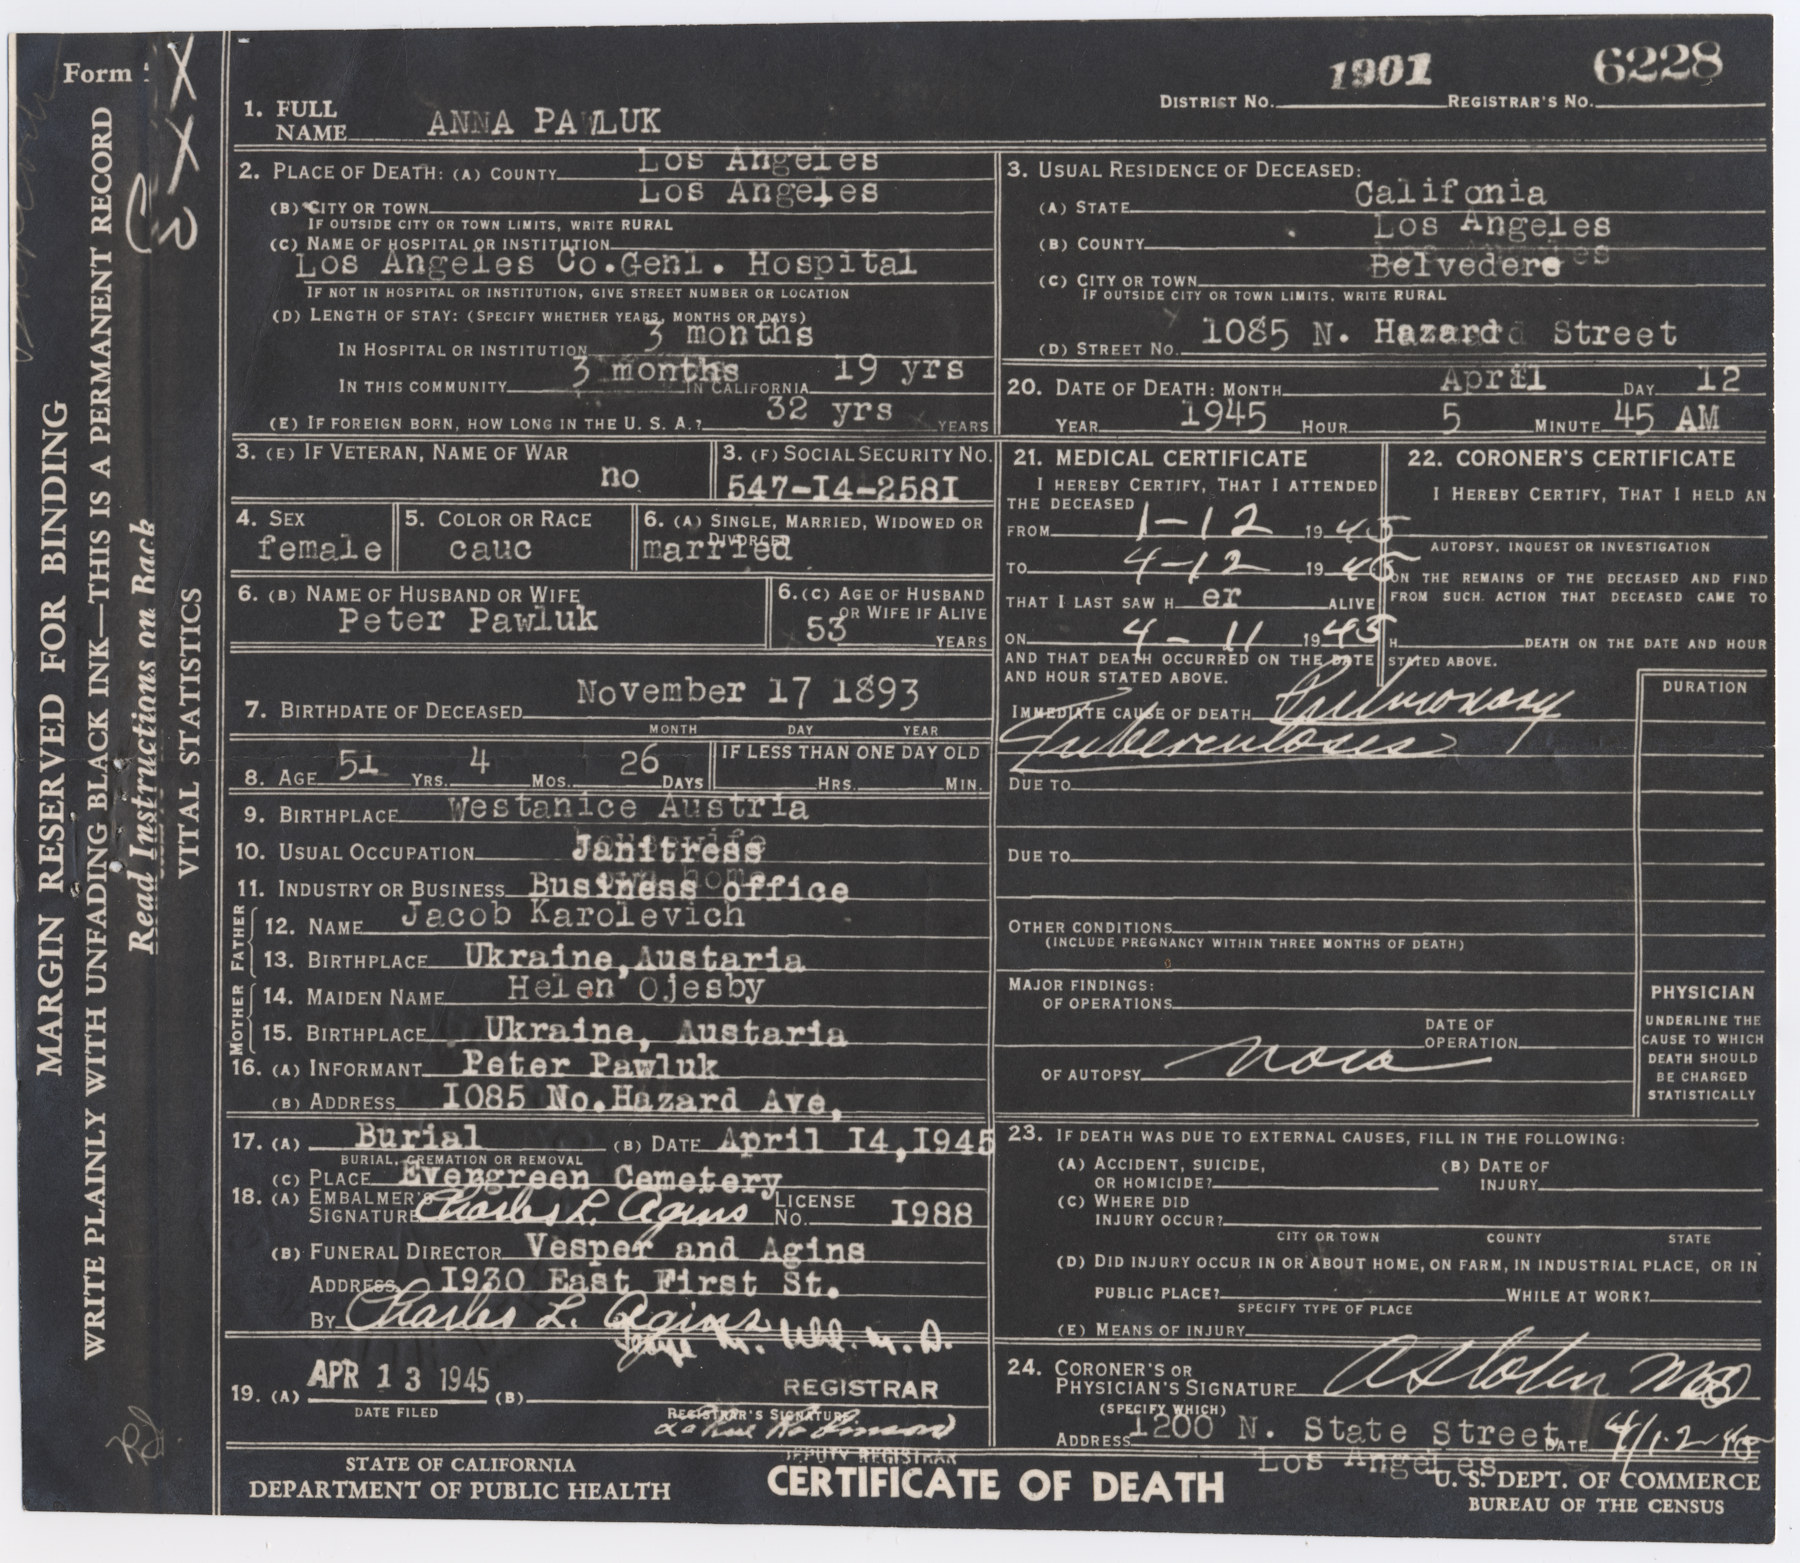 Form
MARGIN RESERVED FOR BINDING
WRITE PLAINLY WITH UNFADING BLACK INK—THIS IS A PERMANENT RECORD
Read Instructions on Back
VITAL STATISTICS
DISTRICT NO. 1901 REGISTRAR'S NO. 6228
1. FULL NAME ANNA PAWLUK
2. PLACE OF DEATH: (A) COUNTY Los Angeles
(B) CITY OR TOWN Los Angeles
IF OUTSIDE CITY OR TOWN LIMITS, WRITE RURAL
(C) NAME OF HOSPITAL OR INSTITUTION
Los Angeles Co.Genl. Hospital
IF NOT IN HOSPITAL OR INSTITUTION, GIVE STREET NUMBER OR LOCATION
(D) LENGTH OF STAY: (SPECIFY WHETHER YEARS, MONTHS OR DAYS)
IN HOSPITAL OR INSTITUTION 3 months
IN THIS COMMUNITY 3 months IN CALIFORNIA 19 yrs
(E) IF FOREIGN BORN, HOW LONG IN THE U. S. A.? 32 yrs YEARS
3. USUAL RESIDENCE OF DECEASED:
(A) STATE Califonia
(B) COUNTY Los Angeles
(C) CITY OR TOWN Belvedere
IF OUTSIDE CITY OR TOWN LIMITS, WRITE RURAL
(D) STREET NO. 1085 N. Hazard Street
20. DATE OF DEATH: MONTH April DAY 12
YEAR 1945 HOUR 5 MINUTE 45 AM
3. (E) IF VETERAN, NAME OF WAR no
3. (F) SOCIAL SECURITY NO. 547-I4-258I
4. SEX female
5. COLOR OR RACE cauc
6. (A) SINGLE, MARRIED, WIDOWED OR DIVORCED married
6. (B) NAME OF HUSBAND OR WIFE Peter Pawluk
6. (C) AGE OF HUSBAND OR WIFE IF ALIVE 53 YEARS
7. BIRTHDATE OF DECEASED November 17 1893
MONTH DAY YEAR
8. AGE 51 YRS. 4 MOS. 26 DAYS
IF LESS THAN ONE DAY OLD
HRS. MIN.
9. BIRTHPLACE Westanice Austria
10. USUAL OCCUPATION Janitress
11. INDUSTRY OR BUSINESS Business office
FATHER
12. NAME Jacob Karolevich
13. BIRTHPLACE Ukraine,Austaria
MOTHER
14. MAIDEN NAME Helen Ojesby
15. BIRTHPLACE Ukraine, Austaria
16. (A) INFORMANT Peter Pawluk
(B) ADDRESS I085 No.Hazard Ave,
17. (A) Burial (B) DATE April I4,I945
BURIAL, CREMATION OR REMOVAL
(C) PLACE Evergreen Cemetery
18. (A) EMBALMER'S SIGNATURE Charles L. Agins LICENSE NO. I988
(B) FUNERAL DIRECTOR Vesper and Agins
ADDRESS I930 East First St.
BY Charles L. Agins
M.D.
19. (A) APR 13 1945 (B) REGISTRAR
DATE FILED REGISTRAR'S SIGNATURE
Robinson
DEPUTY REGISTRAR
21. MEDICAL CERTIFICATE
I HEREBY CERTIFY, THAT I ATTENDED
THE DECEASED
FROM 1-12 1945
TO 4-12 1945
THAT I LAST SAW H er ALIVE
ON 4-11 1945
AND THAT DEATH OCCURRED ON THE DATE
AND HOUR STATED ABOVE.
22. CORONER'S CERTIFICATE
I HEREBY CERTIFY, THAT I HELD AN
AUTOPSY, INQUEST OR INVESTIGATION
ON THE REMAINS OF THE DECEASED AND FIND
FROM SUCH ACTION THAT DECEASED CAME TO
H DEATH ON THE DATE AND HOUR
STATED ABOVE.
DURATION
IMMEDIATE CAUSE OF DEATH Pulmonary
Tuberculosis
DUE TO
DUE TO
OTHER CONDITIONS
(INCLUDE PREGNANCY WITHIN THREE MONTHS OF DEATH)
MAJOR FINDINGS:
OF OPERATIONS
DATE OF OPERATION
OF AUTOPSY
PHYSICIAN
UNDERLINE THE
CAUSE TO WHICH
DEATH SHOULD
BE CHARGED
STATISTICALLY
23. IF DEATH WAS DUE TO EXTERNAL CAUSES, FILL IN THE FOLLOWING:
(A) ACCIDENT, SUICIDE, OR HOMICIDE? (B) DATE OF INJURY
(C) WHERE DID INJURY OCCUR?
CITY OR TOWN COUNTY STATE
(D) DID INJURY OCCUR IN OR ABOUT HOME, ON FARM, IN INDUSTRIAL PLACE, OR IN
PUBLIC PLACE? WHILE AT WORK?
SPECIFY TYPE OF PLACE
(E) MEANS OF INJURY
24. CORONER'S OR PHYSICIAN'S SIGNATURE
(SPECIFY WHICH)
ADDRESS 1200 N. State Street DATE 4/12 45
Los Angeles
STATE OF CALIFORNIA
DEPARTMENT OF PUBLIC HEALTH
CERTIFICATE OF DEATH
U. S. DEPT. OF COMMERCE
BUREAU OF THE CENSUS